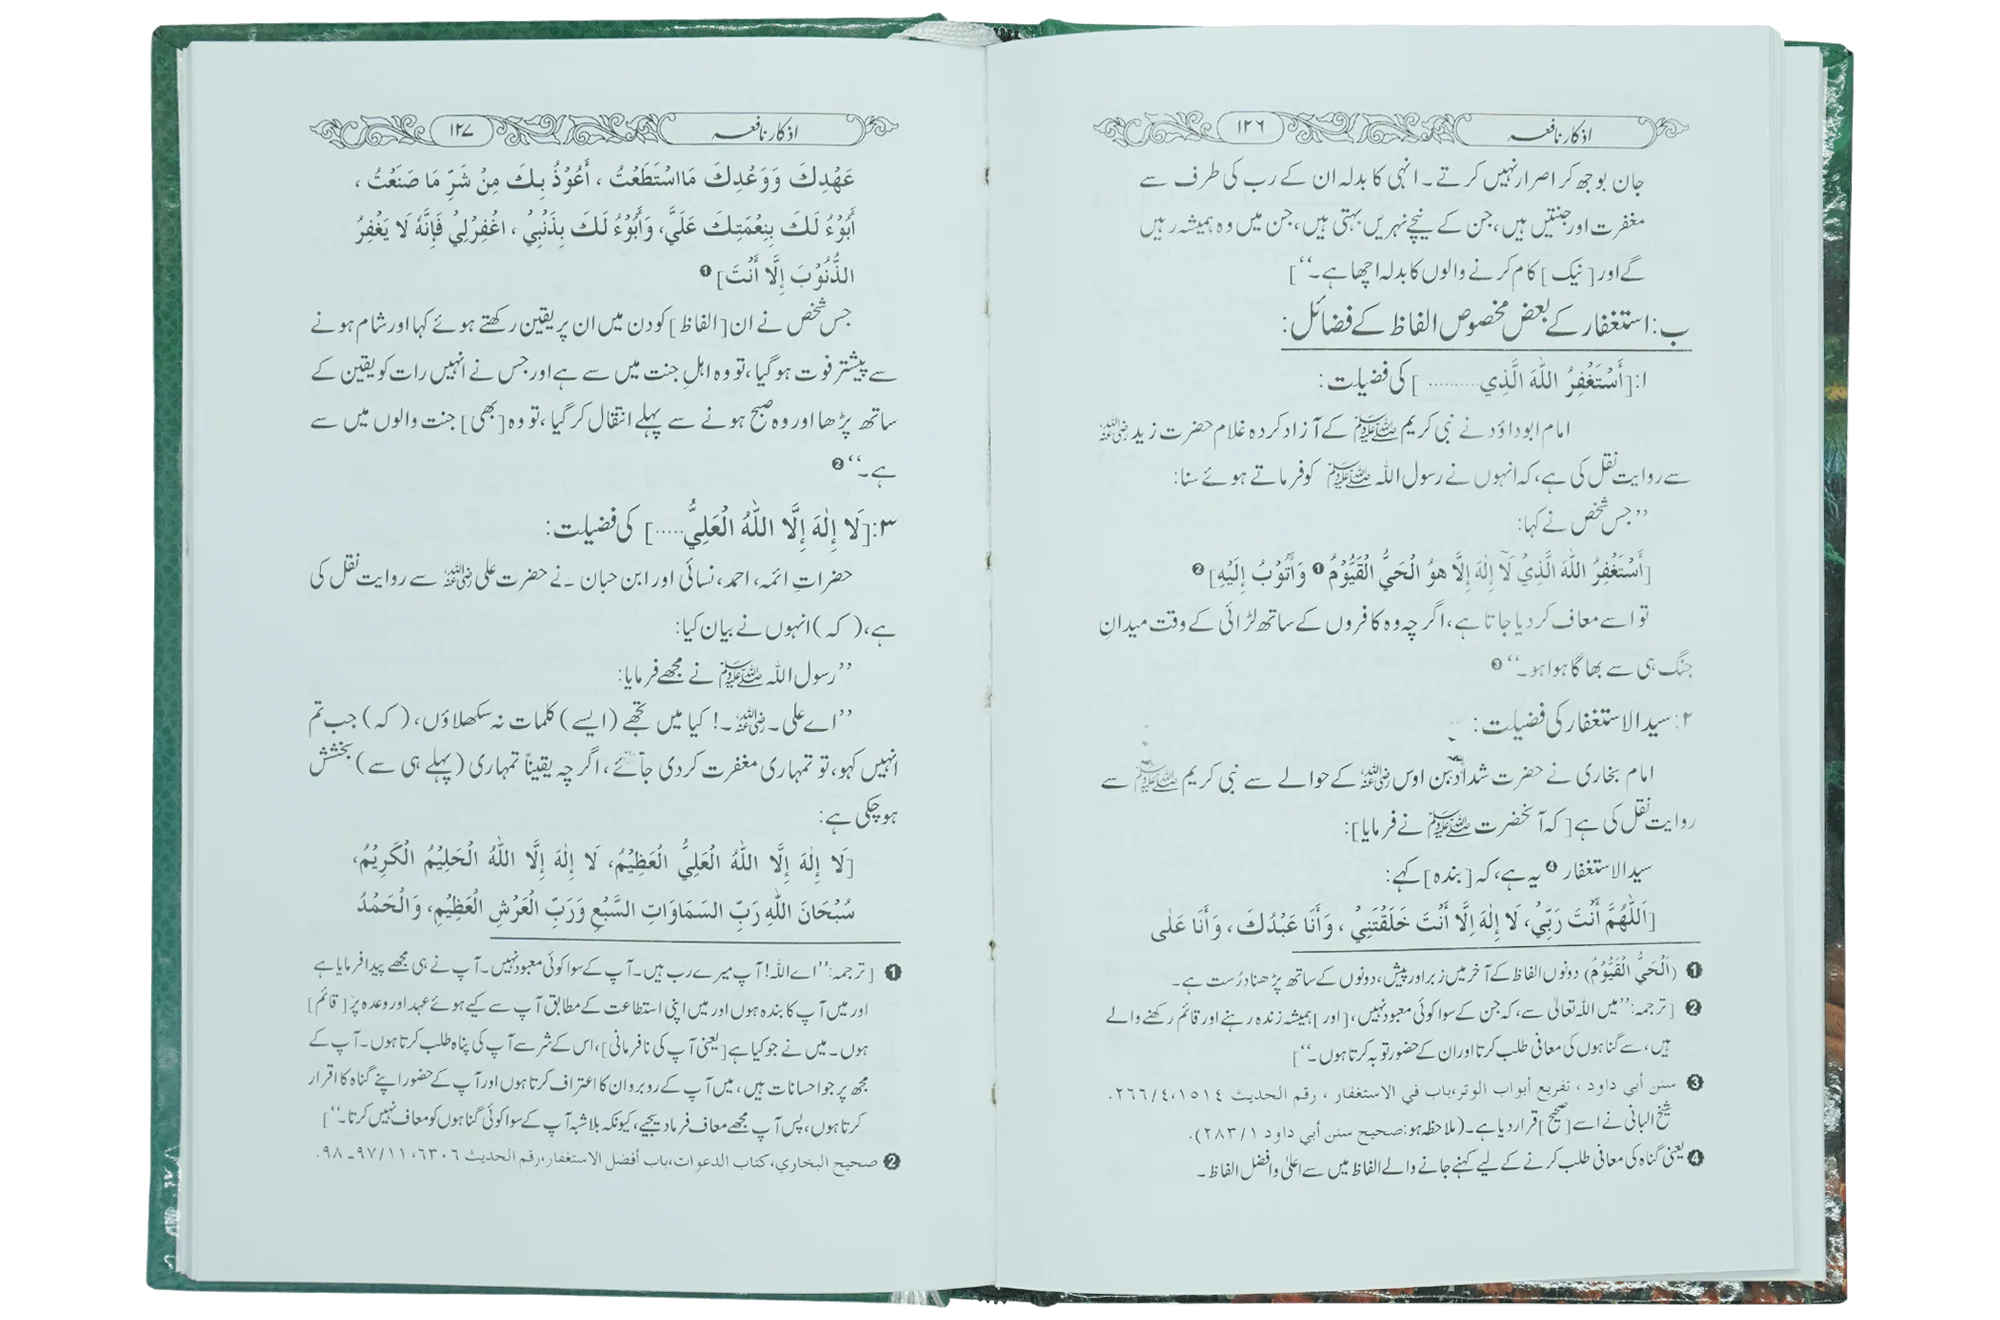 اذکار نافعہ ١٢٦
جان بوجھ کر اصرار نہیں کرتے۔ انہی کا بدلہ ان کے رب کی طرف سے
مغفرت اور جنتیں ہیں، جن کے نیچے نہریں بہتی ہیں، جن میں وہ ہمیشہ رہیں
گے اور [نیک] کام کرنے والوں کا بدلہ اچھا ہے۔‘‘]
ب: استغفار کے بعض مخصوص الفاظ کے فضائل:
١:[أَسْتَغْفِرُ اللّٰهَ الَّذِي..........] کی فضیلت:
امام ابوداؤد نے نبی کریم ﷺ کے آزاد کردہ غلام حضرت زید رضی اللہ عنہ
سے روایت نقل کی ہے، کہ انہوں نے رسول اللہ ﷺ کو فرماتے ہوئے سنا:
’’جس شخص نے کہا:
[أَسْتَغْفِرُ اللّٰهَ الَّذِيْ لَآ إِلٰهَ إِلَّا هوُ الْحَيُّ الْقَيُّوْمُ ❶ وَأَتُوْبُ إِلَيْهِ] ❷
تو اسے معاف کر دیا جاتا ہے، اگر چہ وہ کافروں کے ساتھ لڑائی کے وقت میدانِ
جنگ ہی سے بھاگا ہوا ہو۔‘‘ ❸
٢: سید الاستغفار کی فضیلت:
امام بخاری نے حضرت شداد بن اوس رضی اللہ عنہ کے حوالے سے نبی کریم ﷺ سے
روایت نقل کی ہے [کہ آنحضرت ﷺ نے فرمایا]:
سید الاستغفار ❹ یہ ہے، کہ [بندہ] کہے:
[اَللّٰهُمَّ أَنْتَ رَبِّيْ، لَا إِلٰهَ إِلَّا أَنْتَ خَلَقْتَنِيْ ، وَأَنَا عَبْدُكَ ، وَأَنَا عَلٰى
❶ (اَلْحَيُّ الْقَيُّوْمُ) دونوں الفاظ کے آخر میں زبر اور پیش، دونوں کے ساتھ پڑھنا درُست ہے۔
❷ [ترجمہ: ’’میں اللہ تعالیٰ سے، کہ جن کے سوا کوئی معبود نہیں، [اور] ہمیشہ زندہ رہنے اور قائم رکھنے والے
ہیں، سے گناہوں کی معافی طلب کرتا اور ان کے حضور توبہ کرتا ہوں۔‘‘]
❸ سنن أبي داود ، تفريع أبواب الوتر،باب في الاستغفار ، رقم الحديث ١٥١٤، ٢٦٦/٤.
شیخ البانی نے اسے [صحیح] قرار دیا ہے۔ (ملاحظہ ہو: صحيح سنن أبي داود ٢٨٣/١).
❹ یعنی گناہ کی معافی طلب کرنے کے لیے کہنے جانے والے الفاظ میں سے اعلیٰ وافضل الفاظ۔
اذکار نافعہ ١٢٧
عَهْدِكَ وَوَعْدِكَ مَااسْتَطَعْتُ ، أَعُوْذُ بِكَ مِنْ شَرِّ مَا صَنَعْتُ ،
أَبُوْءُ لَكَ بِنِعْمَتِكَ عَلَيَّ، وَأَبُوْءُ لَكَ بِذَنْبِيْ ، اغْفِرْلِيْ فَإِنَّهُ لَا يَغْفِرُ
الذُّنُوْبَ إِلَّا أَنْتَ] ❶
جس شخص نے ان [الفاظ] کو دن میں ان پر یقین رکھتے ہوئے کہا اور شام ہونے
سے پیشتر فوت ہو گیا، تو وہ اہلِ جنت میں سے ہے اور جس نے انہیں رات کو یقین کے
ساتھ پڑھا اور وہ صبح ہونے سے پہلے انتقال کر گیا، تو وہ [بھی] جنت والوں میں سے
ہے۔‘‘ ❷
٣:[لَا إِلٰهَ إِلَّا اللّٰهُ الْعَلِيُّ.....] کی فضیلت:
حضراتِ ائمہ، احمد، نسائی اور ابن حبان ۔ نے حضرت علی رضی اللہ عنہ سے روایت نقل کی
ہے، (کہ) انہوں نے بیان کیا:
’’رسول اللہ ﷺ نے مجھے فرمایا:
’’اے علی ۔ رضی اللہ عنہ ۔! کیا میں تجھے (ایسے) کلمات نہ سکھلاؤں، (کہ) جب تم
انہیں کہو، تو تمہاری مغفرت کر دی جائے، اگر چہ یقیناً تمہاری (پہلے ہی سے) بخشش
ہو چکی ہے:
[لَا إِلٰهَ إِلَّا اللّٰهُ الْعَلِيُّ الْعَظِيْمُ، لَا إِلٰهَ إِلَّا اللّٰهُ الْحَلِيْمُ الْكَرِيْمُ،
سُبْحَانَ اللّٰهِ رَبِّ السَمَاوَاتِ السَّبْعِ وَرَبِّ الْعَرْشِ الْعَظِيْمِ، وَالْحَمْدُ
❶ [ترجمہ: ’’اے اللہ! آپ میرے رب ہیں۔ آپ کے سوا کوئی معبود نہیں۔ آپ نے ہی مجھے پیدا فرمایا ہے
اور میں آپ کا بندہ ہوں اور میں اپنی استطاعت کے مطابق آپ سے کیے ہوئے عہد اور وعدہ پر [قائم]
ہوں۔ میں نے جو کیا ہے [یعنی آپ کی نافرمانی]، اس کے شر سے آپ کی پناہ طلب کرتا ہوں۔ آپ کے
مجھ پر جو احسانات ہیں، میں آپ کے روبرو ان کا اعتراف کرتا ہوں اور آپ کے حضور اپنے گناہ کا اقرار
کرتا ہوں، پس آپ مجھے معاف فرما دیجیے، کیونکہ بلاشبہ آپ کے سوا کوئی گناہوں کو معاف نہیں کرتا۔‘‘]
❷ صحيح البخاري، كتاب الدعوات،باب أفضل الاستغفار،رقم الحديث ٦٣٠٦، ٩٧/١١ـ ٩٨.